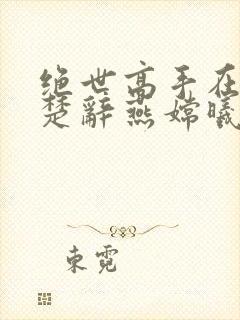 绝世高手在
楚辞燕嫦曦
東霓